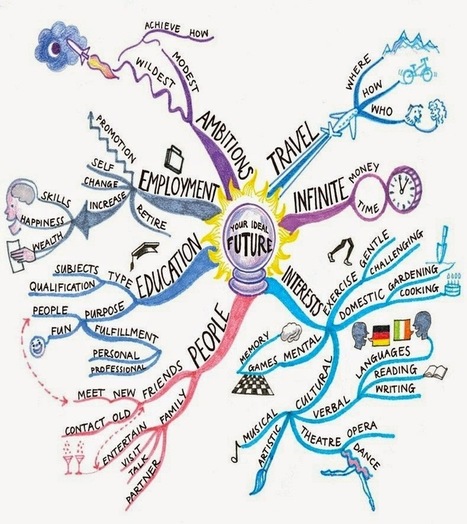 YOUR IDEAL
FUTURE
AMBITIONS
ACHIEVE HOW
MODEST
WILDEST
TRAVEL
WHERE
HOW
WHO
INFINITE
MONEY
TIME
INTERESTS
EXERCISE
GENTLE
CHALLENGING
DOMESTIC
GARDENING
COOKING
MENTAL
MEMORY
GAMES
CULTURAL
VERBAL
LANGUAGES
READING
WRITING
THEATRE
OPERA
DANCE
MUSICAL
ARTISTIC
PEOPLE
FRIENDS
MEET NEW
CONTACT OLD
FAMILY
ENTERTAIN
VISIT
TALK
PARTNER
EDUCATION
TYPE
SUBJECTS
QUALIFICATION
PURPOSE
PEOPLE
FUN
FULFILLMENT
PERSONAL
PROFESSIONAL
EMPLOYMENT
PROMOTION
SELF
CHANGE
INCREASE
SKILLS
HAPPINESS
WEALTH
RETIRE